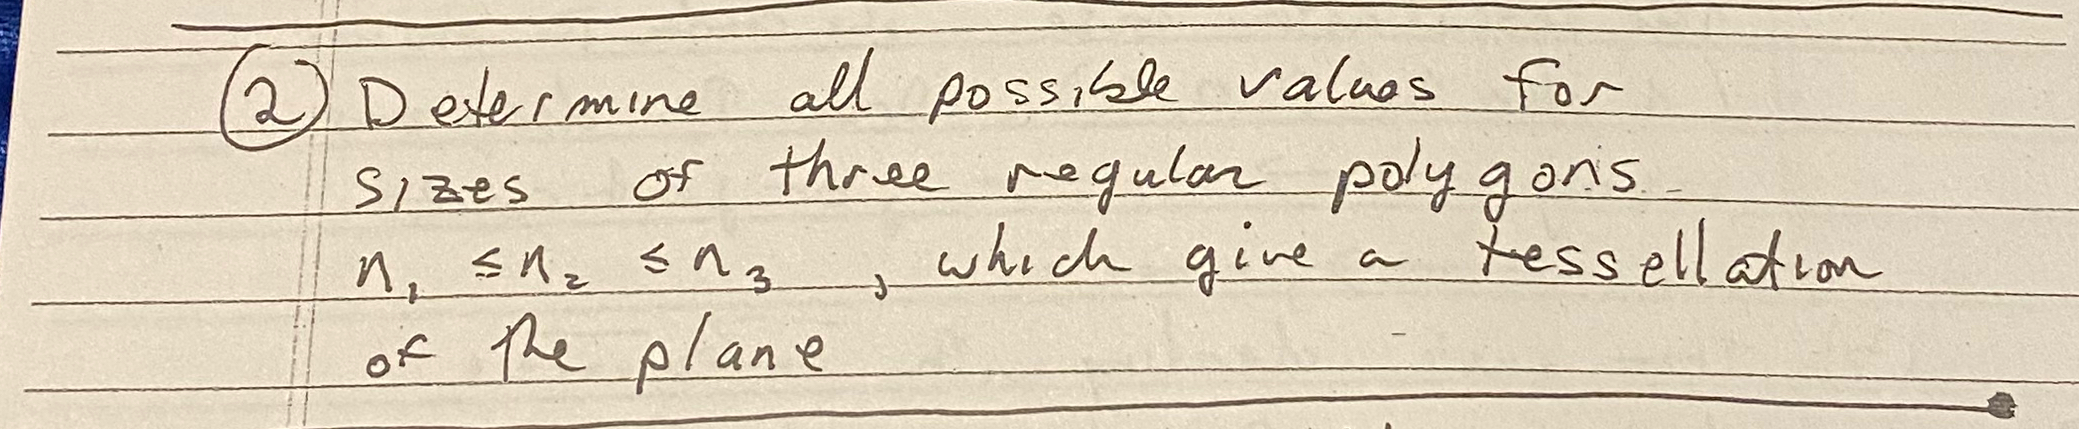 ② Determine all possible values for
sizes of three regular polygons
n₁ ≤ n₂ ≤ n₃ , which give a tessellation
of the plane